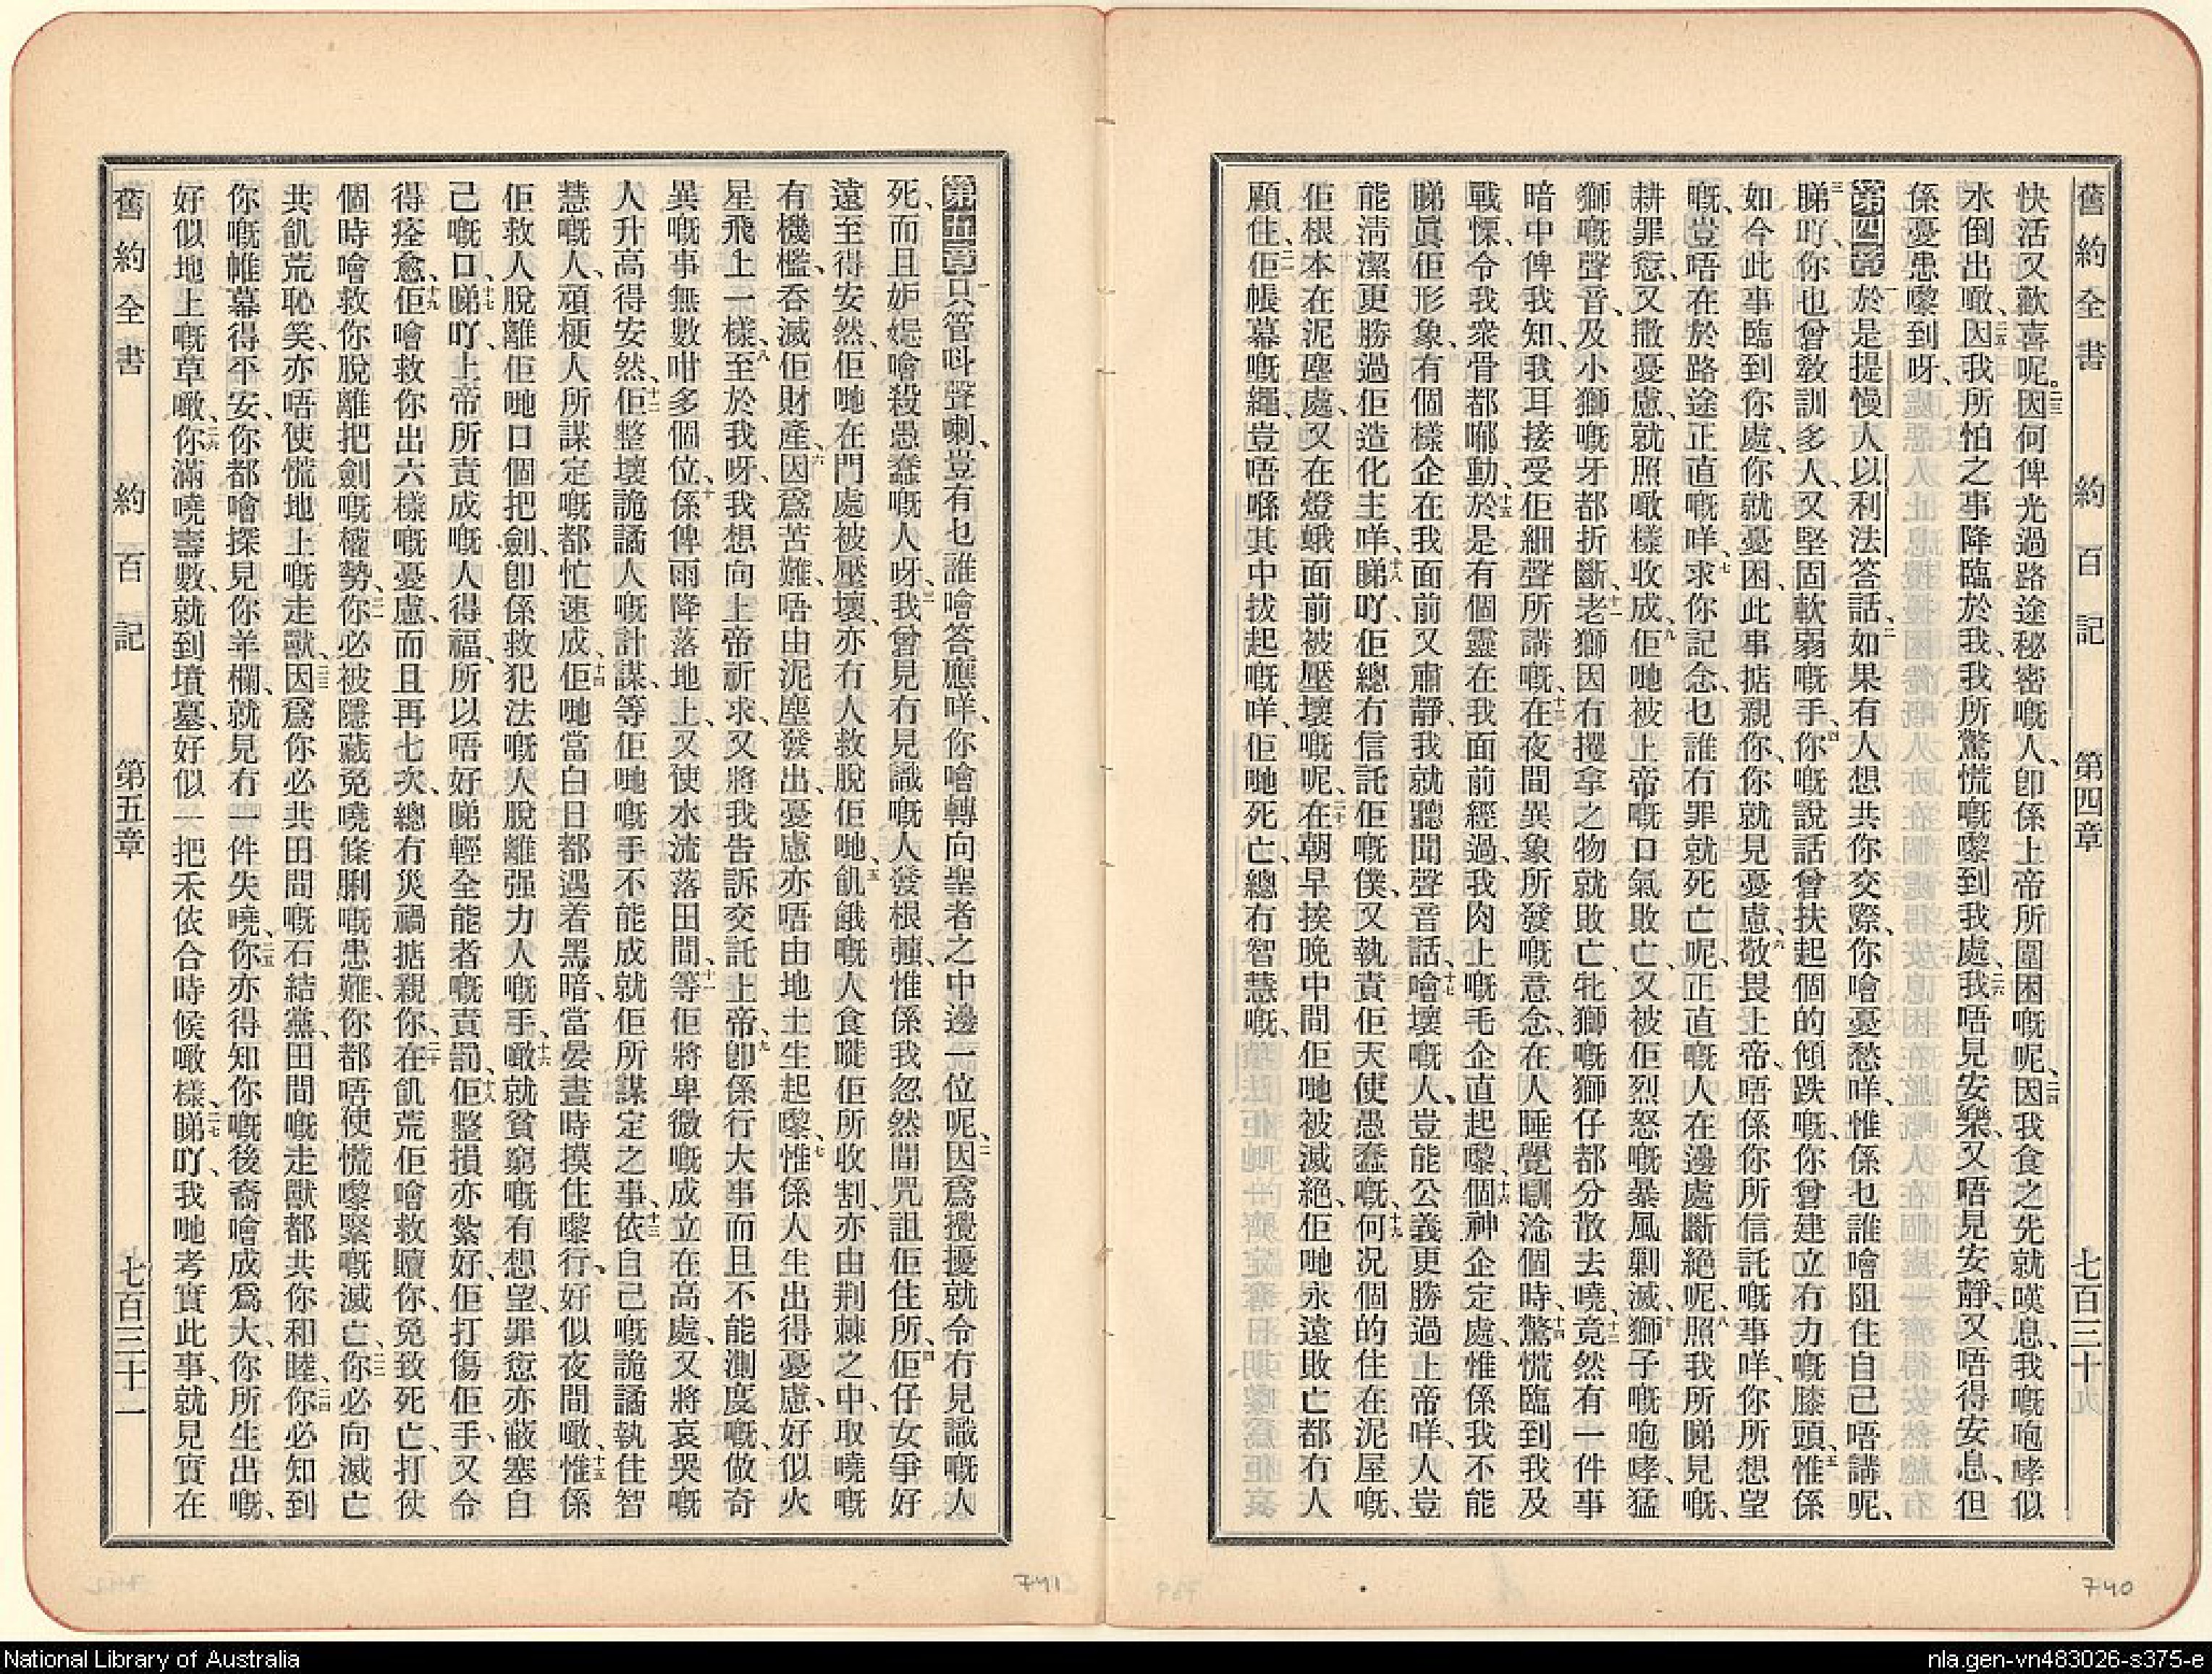 舊約全書 約百記 第四章 七百三十
快活又歡喜呢。二三因何俾光過路途秘密嘅人、卽係上帝所圍困嘅呢、二四因我食之先就嘆息、我嘅咆哮似
水倒出噉、二五因我所怕之事降臨於我、我所驚慌嘅嚟到我處、二六我唔見安樂、又唔見安靜、又唔得安息、但
係憂患嚟到呀、
第四章 一於是提慢人以利法答話、二如果有人想共你交際、你噲憂愁咩、惟係乜誰噲阻住自己唔講呢、
三睇吖、你也曾敎訓多人、又堅固軟弱嘅手、四你嘅說話曾扶起個的傾跌嘅、你曾建立冇力嘅膝頭、五惟係
如今此事臨到你處、你就憂困、此事掂親你、你就見憂慮、六敬畏上帝、唔係你所信託嘅事咩、你所想望
嘅、豈唔在於路途正直嘅咩、七求你記念、乜誰冇罪就死亡呢、正直嘅人在邊處斷絕呢、八照我所睇見嘅、
耕罪愆又撒憂慮、就照噉樣收成、九佢哋被上帝嘅口氣敗亡、又被佢烈怒嘅暴風剿滅、十獅子嘅咆哮、猛
獅嘅聲音、及小獅嘅牙都折斷、十一老獅因冇攫拿之物就敗亡、牝獅嘅獅仔都分散去嘵、十二竟然有一件事
暗中俾我知、我耳接受佢細聲所講嘅、十三在夜間異象所發嘅意念、在人睡覺瞓淰個時、十四驚慌臨到我及
戰慄、令我衆骨都郰動、十五於是有個靈在我面前經過、我肉上嘅毛企直起嚟、十六個神企定處、惟係我不能
睇眞佢形象、有個樣企在我面前、又肅靜、我就聽聞聲音話、十七噲壞嘅人、豈能公義更勝過上帝咩、人豈
能淸潔更勝過佢造化主咩、十八睇吖、佢總冇信託佢嘅僕、又執責佢天使愚蠢嘅、十九何况個的住在泥屋嘅、
佢根本在泥塵處、又在燈蛾面前被壓壞嘅呢、二十在朝早挨晚中間佢哋被滅絕、佢哋永遠敗亡都冇人
顧住、二一佢帳幕嘅繩、豈唔喺其中拔起嘅咩、佢哋死亡、總冇智慧嘅、
第五章 一只管呌聲喇、豈有乜誰噲答應咩、你噲轉向聖者之中邊一位呢、二因爲攪擾就令冇見識嘅人
死、而且妒媢噲殺愚蠢嘅人呀、三我曾見冇見識嘅人發根蘊、惟係我忽然間咒詛佢住所、四佢仔女爭好
遠至得安然、佢哋在門處被壓壞、亦冇人救脫佢哋、五飢餓嘅人食嘥佢所收割、亦由荆棘之中、取嘵嘅、
有機檻、吞滅佢財產、六因爲苦難、唔由泥塵發出、憂慮亦唔由地土生起嚟、七惟係人生出得憂慮、好似火
星飛上一樣、八至於我呀、我想向上帝祈求、又將我告訴交託上帝、九卽係行大事而且不能測度嘅、做奇
異嘅事無數咁多個位、十係俾雨降落地上、又使水流落田間、十一等佢將卑微嘅成立在高處、又將哀哭嘅
人升高得安然、十二佢整壞詭譎人嘅計謀、等佢哋嘅手不能成就佢所謀定之事、十三依自己嘅詭譎執住智
慧嘅人、頑梗人所謀定嘅都忙速成、十四佢哋當白日都遇着黑暗、當晏晝時摸住嚟行、好似夜間噉、十五惟係
佢救人脫離佢哋口個把劍、卽係救犯法嘅人脫離强力人嘅手、十六噉就貧窮嘅有想望、罪愆亦蔽塞自
己嘅口、十七睇吖、上帝所責成嘅人得福、所以唔好睇輕全能者嘅責罰、十八佢整損亦紮好、佢打傷佢手、又令
得痊愈、十九佢噲救你出六樣嘅憂慮、而且再七次、總冇災禍掂親你、二十在飢荒佢噲救贖你、免致死亡、打仗
個時噲救你脫離把劍嘅權勢、二一你必被隱藏免嘵條脷嘅患難、你都唔使慌嚟緊嘅滅亡、二二你必向滅亡
共飢荒恥笑、亦唔使慌地上嘅走獸、二三因爲你必共田間嘅石結黨、田間嘅走獸都共你和睦、二四你必知到
你嘅帷幕得平安、你都噲探見你羊欄、就見冇一件失嘵、二五你亦得知你嘅後裔噲成爲大、你所生出嘅、
好似地上嘅草噉、二六你滿嘵壽數、就到墳墓、好似一把禾依合時候噉樣、二七睇吖、我哋考實此事、就見實在
舊約全書 約百記 第五章 七百三十一
741
740
National Library of Australia
nla.gen-vn483026-s375-e